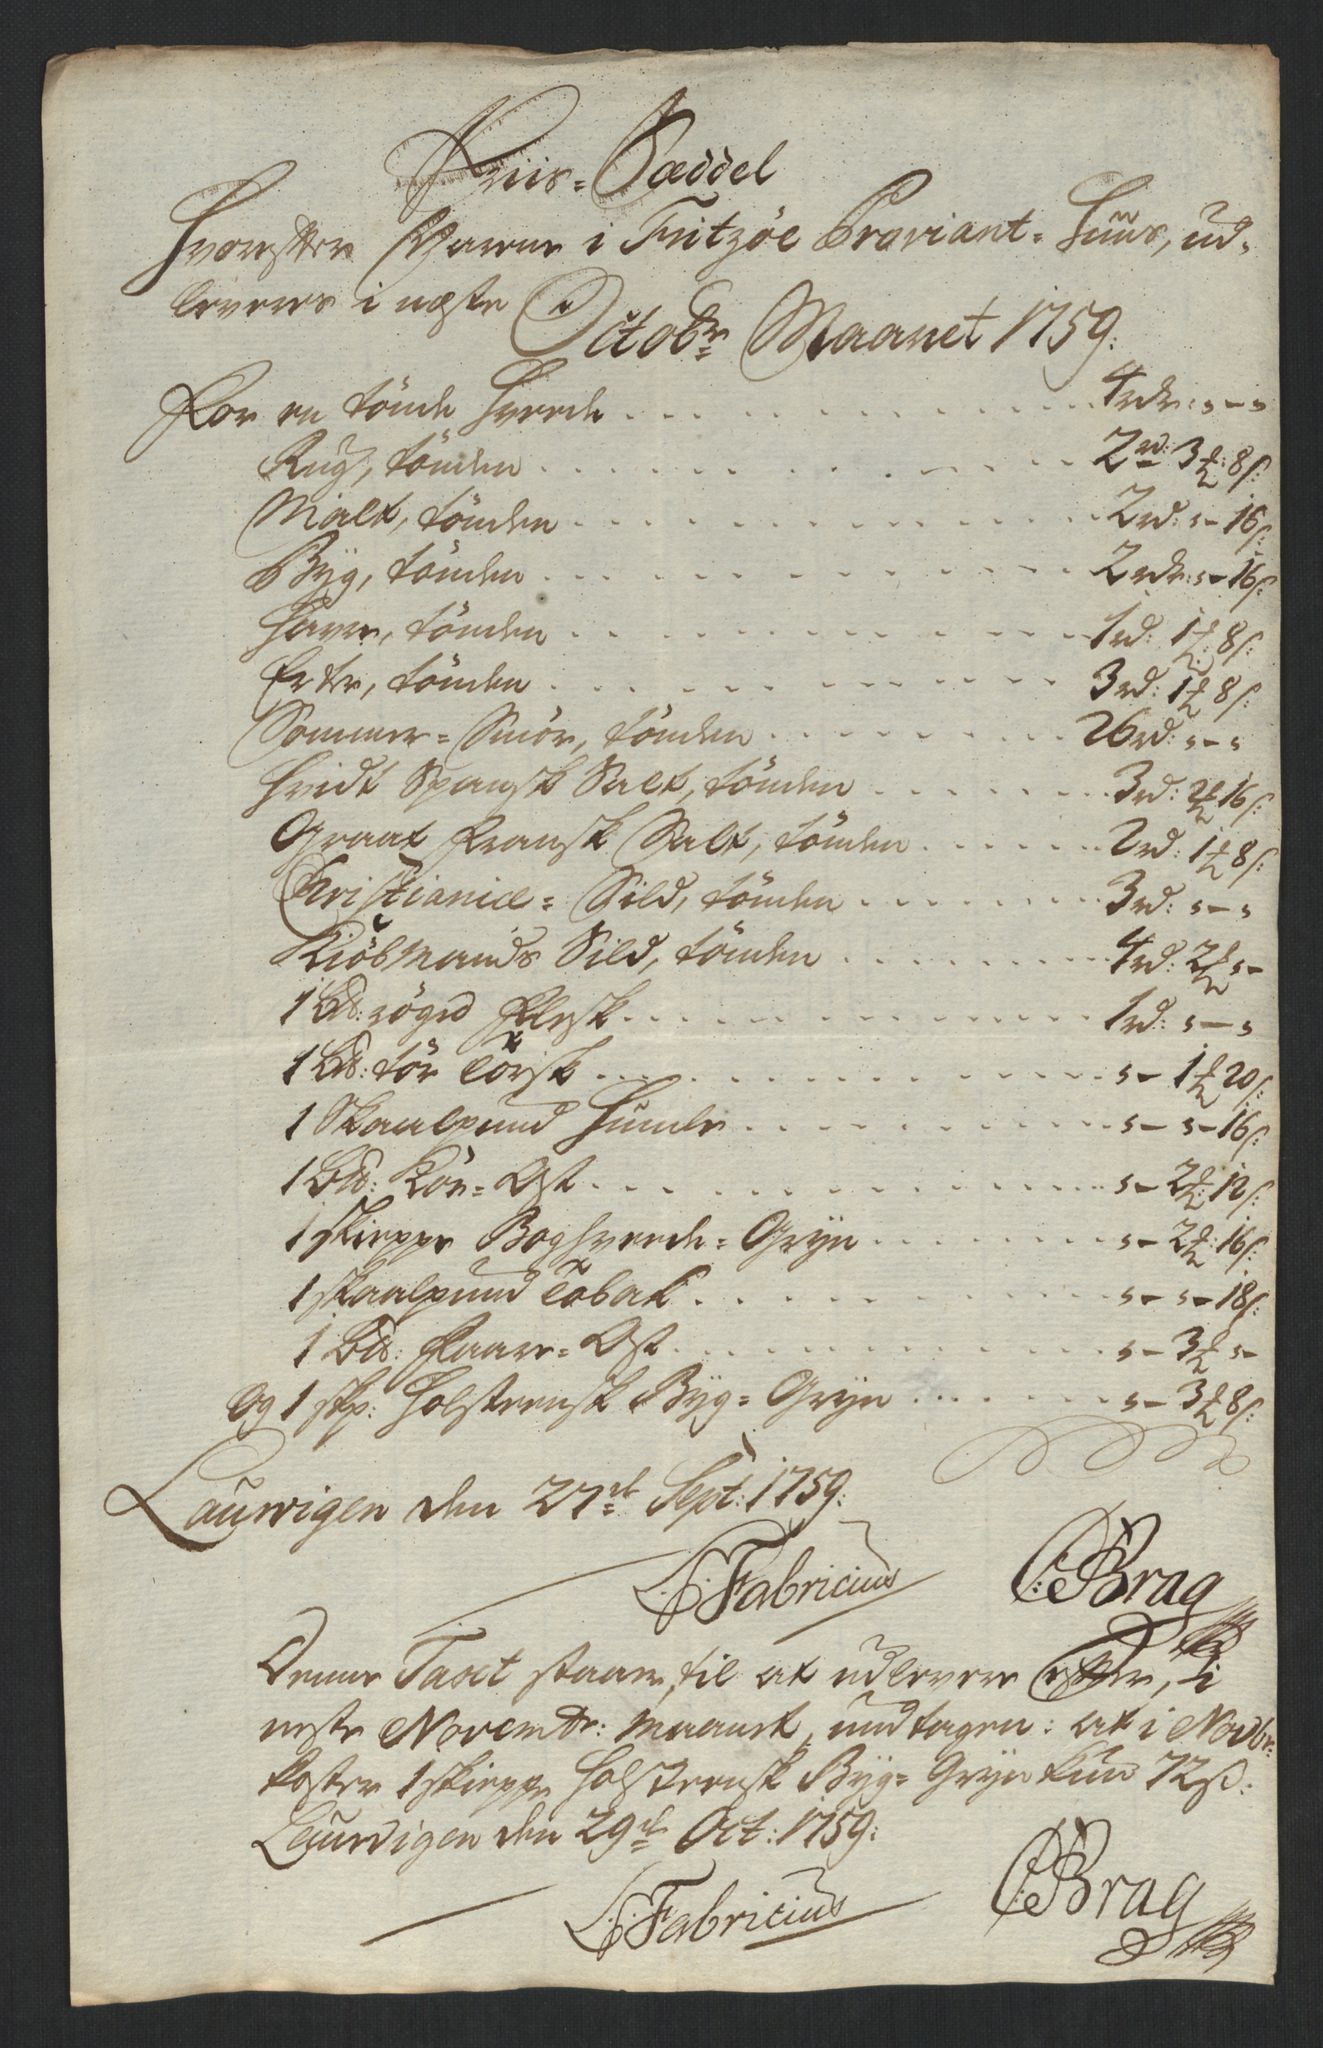 Priis=Sæddel
Hvorefter Vharene i Fritzöe Proviant=Huus, ud=
leveres i næste Octobr Maanet 1759:
For en tönde Hvede . . . 4rdr: s – s
Rug, tönden . . . 2rd: 3 ½: 8s:
Malt, tönden . . . 2rd: s – 16s:
Byg, tönden . . . 2rdr: s – 16s:
Havre, tönden . . . 1rd: 1 ½: 8s:
Erter, tönden . . . 3rd: 1 ½ 8s:
Sommer=Smör, tönden . . . 26rd: s – s
Hvidt Spansk Salt, tönden . . . 3rd: 2 ½ 16s:
Graat Fransk Salt, tönden . . . 2rd: 1 ½ 8s:
Christianiæ=Sild, tönden . . . 3rd: s – s
Kiöbmands Sild, tönden . . . 4rd: 2 ½ s –
1 Bd: röget Flesk . . . 1rd: s – s
1 Bd: tör Törsk . . . s – 1 ½ 20s:
1 Skaalpund Humle . . . s – s – 16s:
1 Bd: Kör=Ost . . . s – 2 ½: 12s:
1 skieppe Boghvede=Gryn . . . s – 2 ½: 16s:
1 skaalpund Tobak . . . s – s – 18s:
1 Bd: Faare=Ost . . . s – 3 ½ s –
Og 1 skp: Holsteensk Byg=Gryn . . . s – 3 ½ 8s:
Laurvigen den 27de Sept: 1759:
Fabricius CBrag
Denne Taxt staar til at udlevere efter, i
neste Novembr: maanet, undtagen: at i Novbr:
koster 1 skieppe Holsteensk Byg=Gryn kun 72s:
Laurvigen den 29de Oct: 1759:
Fabricius CBrag